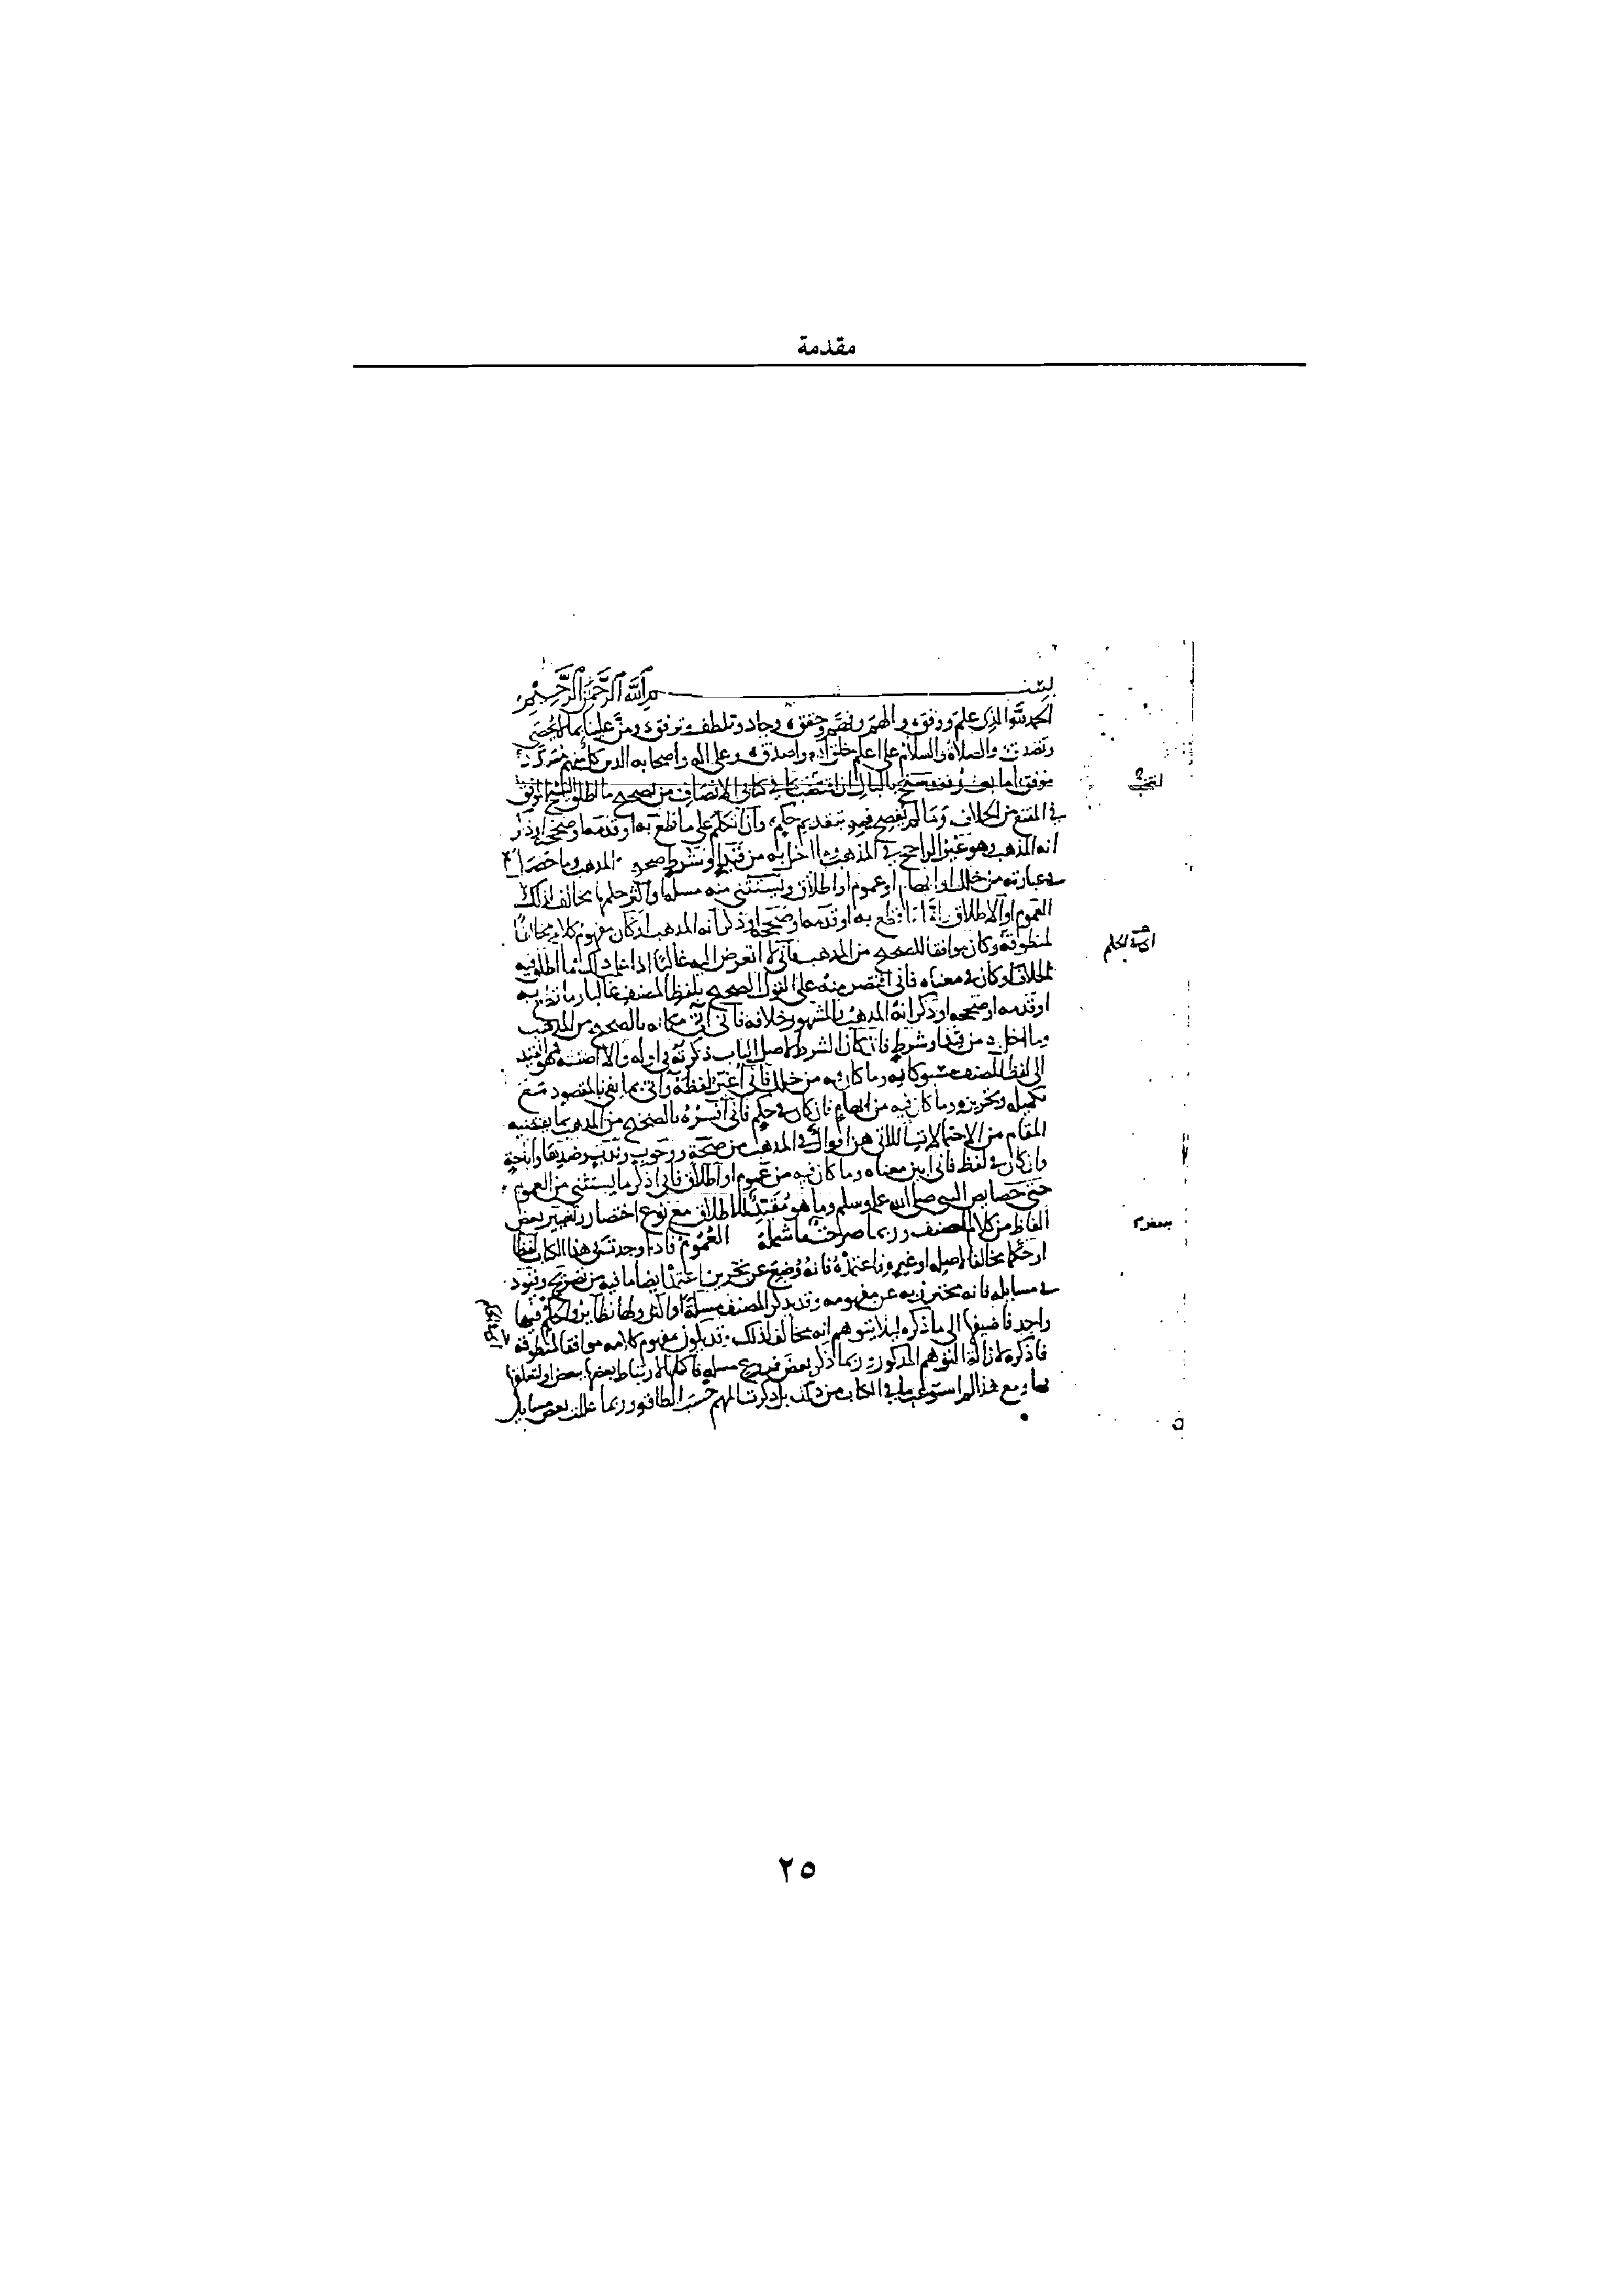 مقدمة
بسم الله الرحمن الرحيم
الحمد لله الذي علم ووفق والهم وفهم وحقق وجاد وتلطف وترفق ومن علينا بما لا يحصى
وتصدق والصلاة والسلام على اعلم خلق الله واصدق وعلى اله واصحابه الذين كل منهم
موفق اما بعد فقد سنح بالبال ان اقتضب ما في كتابي الانصاف من تصحيح ما اطلق الشيخ الموفق
في المقنع من الخلاف وما لم يفصح فيه بتقديم حكم وان اتكلم على ما قطع به او قدمه او صححه او ذكر
انه المذهب وهو غير الراجح في المذهب وما اخل به من قيد او شرط صحح المذهب وما حصل
في عبارته من خلل او ابهام او عموم او اطلاق ويستثنى منه مسئلة او اكثر حكمها مخالف لذلك
العموم او الاطلاق واما ما قطع به او قدمه او صححه او ذكر انه المذهب او كان مفهوم كلامه مخالفا
لمنطوقه وكان موافقا للصحيح من المذهب فاني لا اتعرض اليه غالبا اذا علم ذلك فما اطلق فيه
الخلاف او كان في معناه فاني اقتصر منه على القول الصحيح بلفظ المصنف غالبا وما قطع به
او قدمه او صححه او ذكر انه المذهب والمشهور خلافه فاني اتي مكانه بالصحيح من المذهب
وما اخل به من قيد او شرط فان كان الشرط لاصل الباب ذكرته في اوله والا اضفته
الى لفظ المصنف مسبوكا به وما كان فيه من خلل فاني اغير لفظه واتي بما يفي بالمقصود مع
تكميله وتحريره وما كان فيه من ابهام فان كان في حكم فاني افسره بالصحيح من المذهب بما يقتضيه
المقام من الاحتمالات اللاتي هن اقوال في المذهب من صحة ووجوب وندب وضديها واباحة
وان كان في لفظ فاني ابين معناه وما كان فيه من عموم او اطلاق فاني اذكر ما يستثنى من العموم
حتى خصايص النبي صلى الله عليه وسلم وما هو مقيد للاطلاق مع نوع اختصار وتغيير بعض
الفاظ من كلام المصنف وربما صرحت بما شمله العموم فاذا وجدت في هذا الكتاب لفظا
او حكما مخالفا لاصله او غيره فاعتمده فانه وضع عن تحرير واعتمد ايضا ما فيه من تصريح وقيود
في مسايله فانه محترز به عن مفهومه وقد يذكر المصنف مسئلة او اكثر ولها نظاير والحكم فيها
واحد فاضيفها الى ما ذكره ليلا يتوهم انه مخالف لذلك وقد يكون مفهوم كلامه موافقا لمنطوقه
فاذكره لازالة التوهم المذكور وربما اذكر بعض فروع مسئلة فاكملها لارتباط بعضها ببعض او لتعلقها
بها ومع هذا لم استوعب ما في الكتاب من ذلك بل ذكرت المهم حسب الطاقة وربما عللت بعض مسايل
٢٥